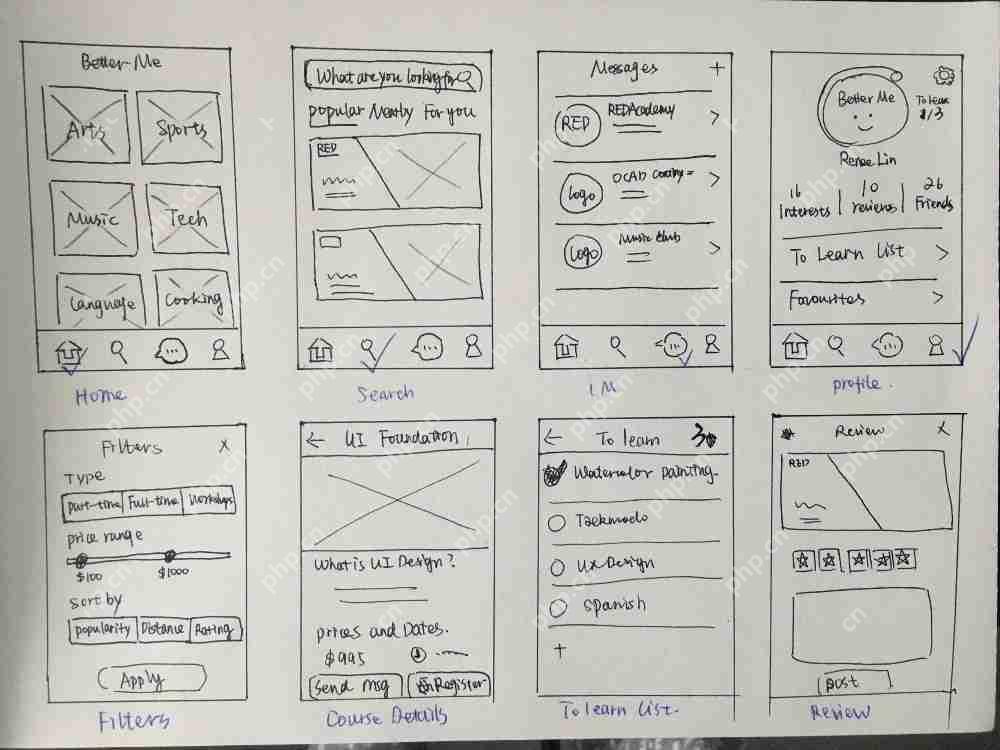 Better Me
Arts
Sports
Music
Tech
Language
Cooking
Home
What are you looking for
popular Nearby For you
RED
Search
Messages +
RED
REDAcademy
Logo
OCAD
Logo
Music Club
I.M
Better Me
To learn
1/3
Renee Lin
16
Interests
10
reviews
26
Friends
To Learn List
Favourites
profile.
Filters X
Type
part-time Full-time Workshops
price range
$100 $1000
Sort by
popularity Distance Rating
Apply
Filters
UI Foundation
What is UI Design?
prices and Dates.
$995
Send msg
Register
Course Details
To learn
Watercolor painting
Taekwodo
UX Design
Spanish
+
To learn List.
Review X
RED
post
Review
php.cn